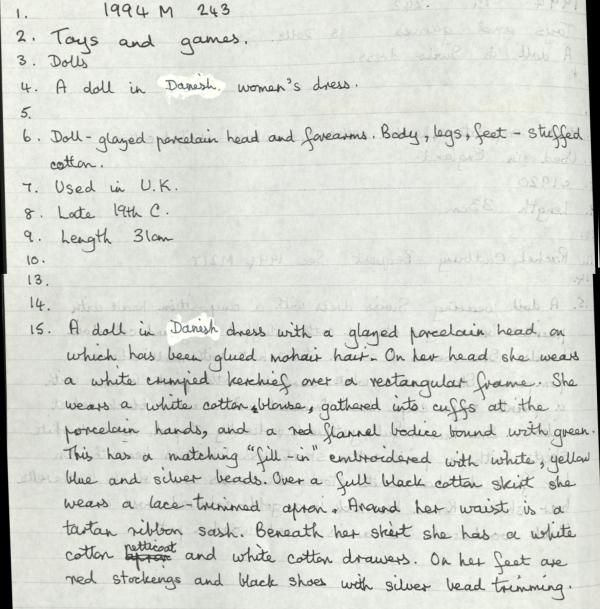 1. 1994 M 243
2. Toys and games.
3. Dolls
4. A doll in Danesh women's dress.
5.
6. Doll - glazed porcelain head and forearms. Body, legs, feet - stuffed
cotton.
7. Used in U.K.
8. Late 19th C.
9. Length 31cm
10.
13.
14.
15. A doll in Danish dress with a glazed porcelain head on
which has been glued mohair hair. On her head she wears
a white crimped kerchief over a rectangular frame. She
wears a white cotton blouse, gathered into cuffs at the
porcelain hands, and a red flannel bodice bound with green.
This has a matching "fill-in" embroidered with white, yellow
blue and silver beads. Over a full black cotton skirt she
wears a lace-trimmed apron. Around her waist is a
tartan ribbon sash. Beneath her skirt she has a white
cotton petticoat and white cotton drawers. On her feet are
red stockings and black shoes with silver bead trimming.